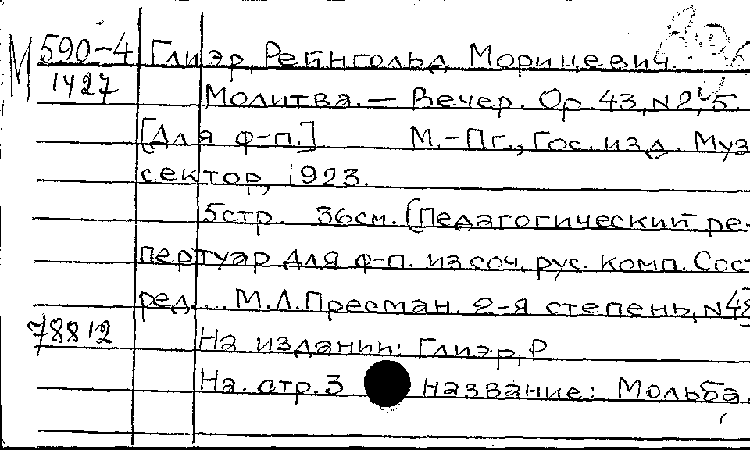 М 590-4 Глиэр, Рейнгольд Морицевич.
1427 Молитва. — Вечер. Ор. 43, N 2, 5.
[Для ф-п.] М.-Пг., Гос. изд. Муз
сектор, 1923.
5стр. 36см. (Педагогический ре-
пертуар для ф-п. из соч. рус. комп. Сост
ред. .. М.Л.Пресман. 2-я степень, N 48
78812 На издании: Глиэр, Р
На. стр. 3 название: Мольба.